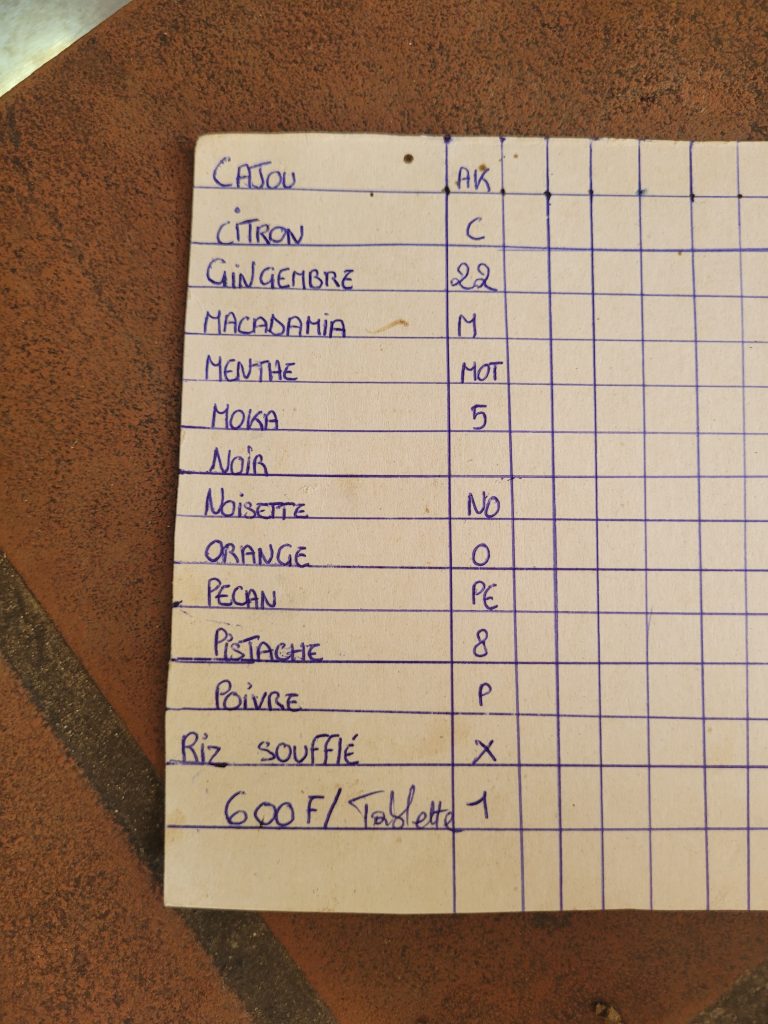 CAJOU AK
CITRON C
GINGEMBRE 22
MACADAMIA M
MENTHE MOT
MOKA 5
NOIR
NOISETTE NO
ORANGE O
PECAN PE
PISTACHE 8
POIVRE P
RIZ SOUFFLÉ X
600 F/ Tablette 1